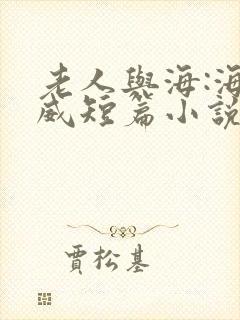 老人與海:海
威短篇小說
賈松基